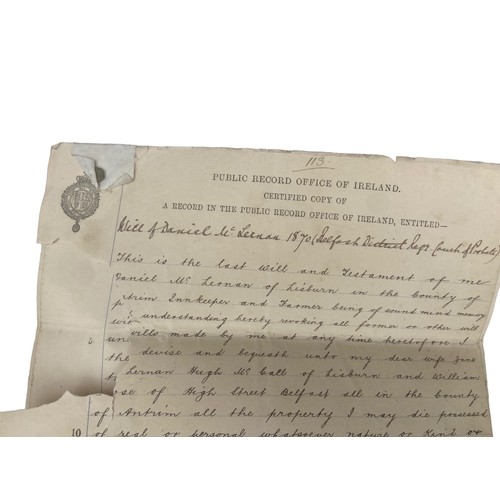 113.
PUBLIC RECORD OFFICE OF IRELAND.
CERTIFIED COPY OF
A RECORD IN THE PUBLIC RECORD OFFICE OF IRELAND, ENTITLED—
Will of Daniel Mc Lernan 1870 (Belfast District Regy Court of Probate)
This is the last Will and Testament of me
Daniel Mc Lernan of Lisburn in the County of
trim Innkeeper and Farmer being of sound mind memory
understanding hereby revoking all former or other will
wills made by me at any time heretofore I
5
the devise and bequeath unto my dear wife Jane
Lernan Hugh Mc Call of Lisburn and William
ose of High Street Belfast all in the County
of Antrim all the property I may die possessed
10 of real or personal whatsoever nature or Kind or